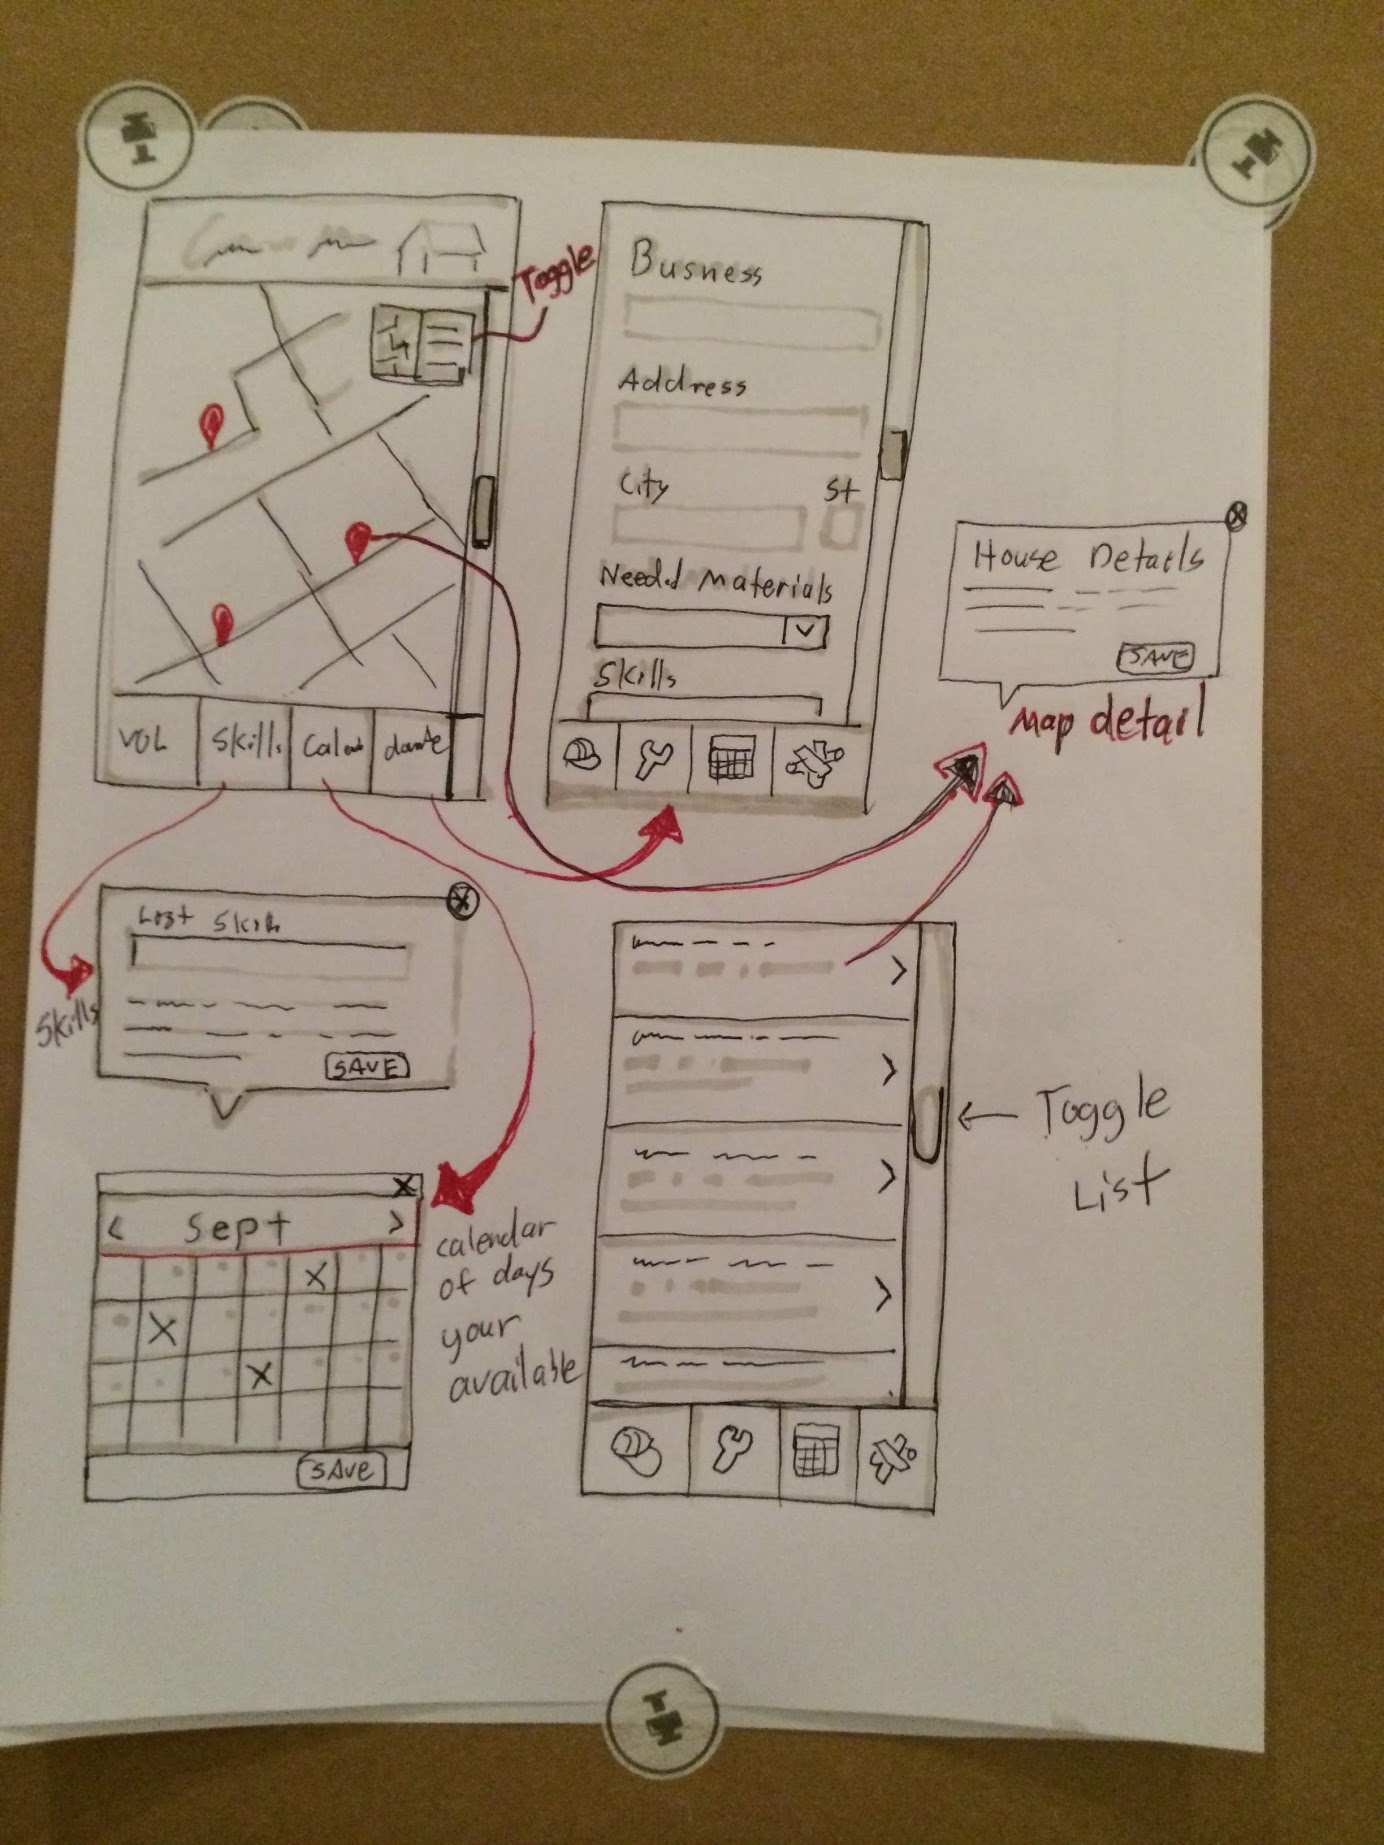 Toggle
VOL
Skills
Calend
donate
Busness
Address
City
St
Needed Materials
Skills
House Details
SAVE
Map detail
List Skills
SAVE
Skills
Sept
SAVE
calendar
of days
your
available
Toggle
List